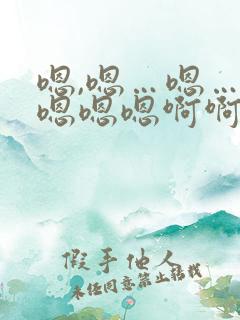 嗯,嗯…嗯…
嗯嗯嗯啊啊
假手他人
未经同意禁止转载